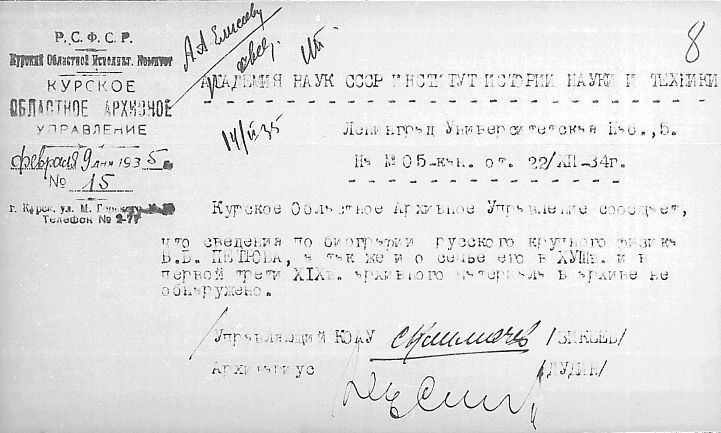 Р.С.Ф.С.Р.
Курский Областной Исполнит. Комитет
КУРСКОЕ
ОБЛАСТНОЕ АРХИВНОЕ
УПРАВЛЕНИЕ
февраля 9 дня 1935 г.
№ 15
г. Курск, ул. М. Горького
Телефон № 2-77
А.А. Елисееву
8
АКАДЕМИЯ НАУК СССР ИНСТИТУТ ИСТОРИИ НАУКИ И ТЕХНИКИ
14/II 35
Ленинград Университетская Наб., 5.
На № 05-кан. от. 22/XII-34г.
Курское Областное Архивное Управление сообщает,
что сведения по биографии русского крупного физика
В.В. ПЕТРОВА, а так же и о семье его в ХУШв. и в
первой трети XIXв. архивного материала в архиве не
обнаружено.
Управляющий КОАУ /ЗИКЕЕВ/
Архивариус /ДУДИН/